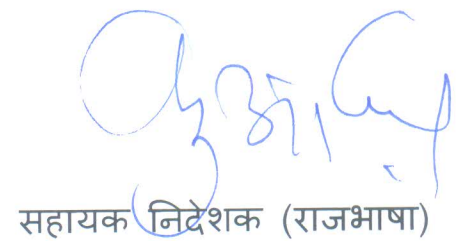 सहायक निदेशक (राजभाषा)